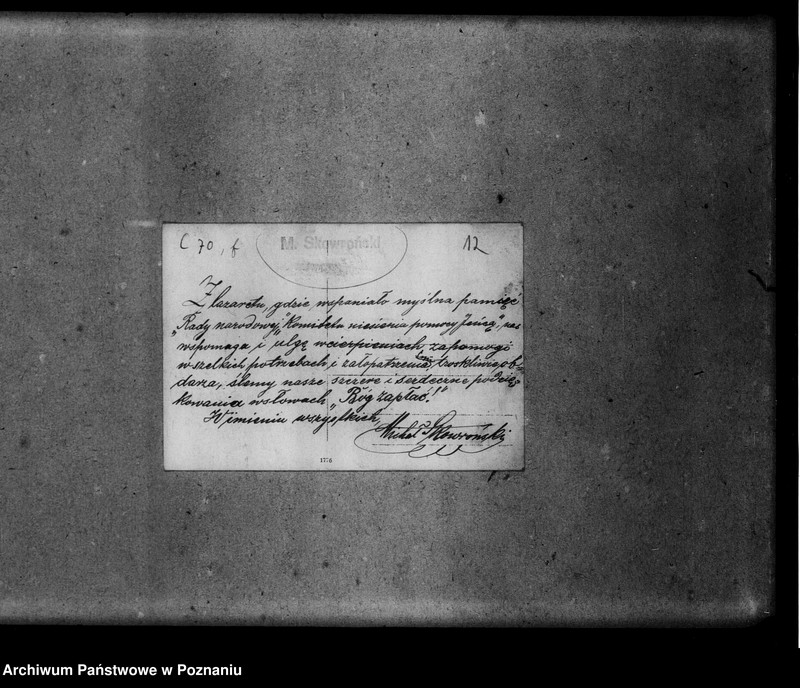 C 70, f
M. Skowroński
12
Z lazaretu, gdzie wspaniało myślna pamięć
"Rady narodowej" Komitetu niesienia pomocy Jeńcą", nas
wspomaga i ulgę w cierpieniach, zapomogi
w szelkich potrzebach, i załopatrzenia troskliwie ob-
darza, ślemy nasze szczere i serdeczne podzię-
kowania w słowach "Bóg zapłać!"
W imieniu wszystkich
Michał Skowroński
Archiwum Państwowe w Poznaniu